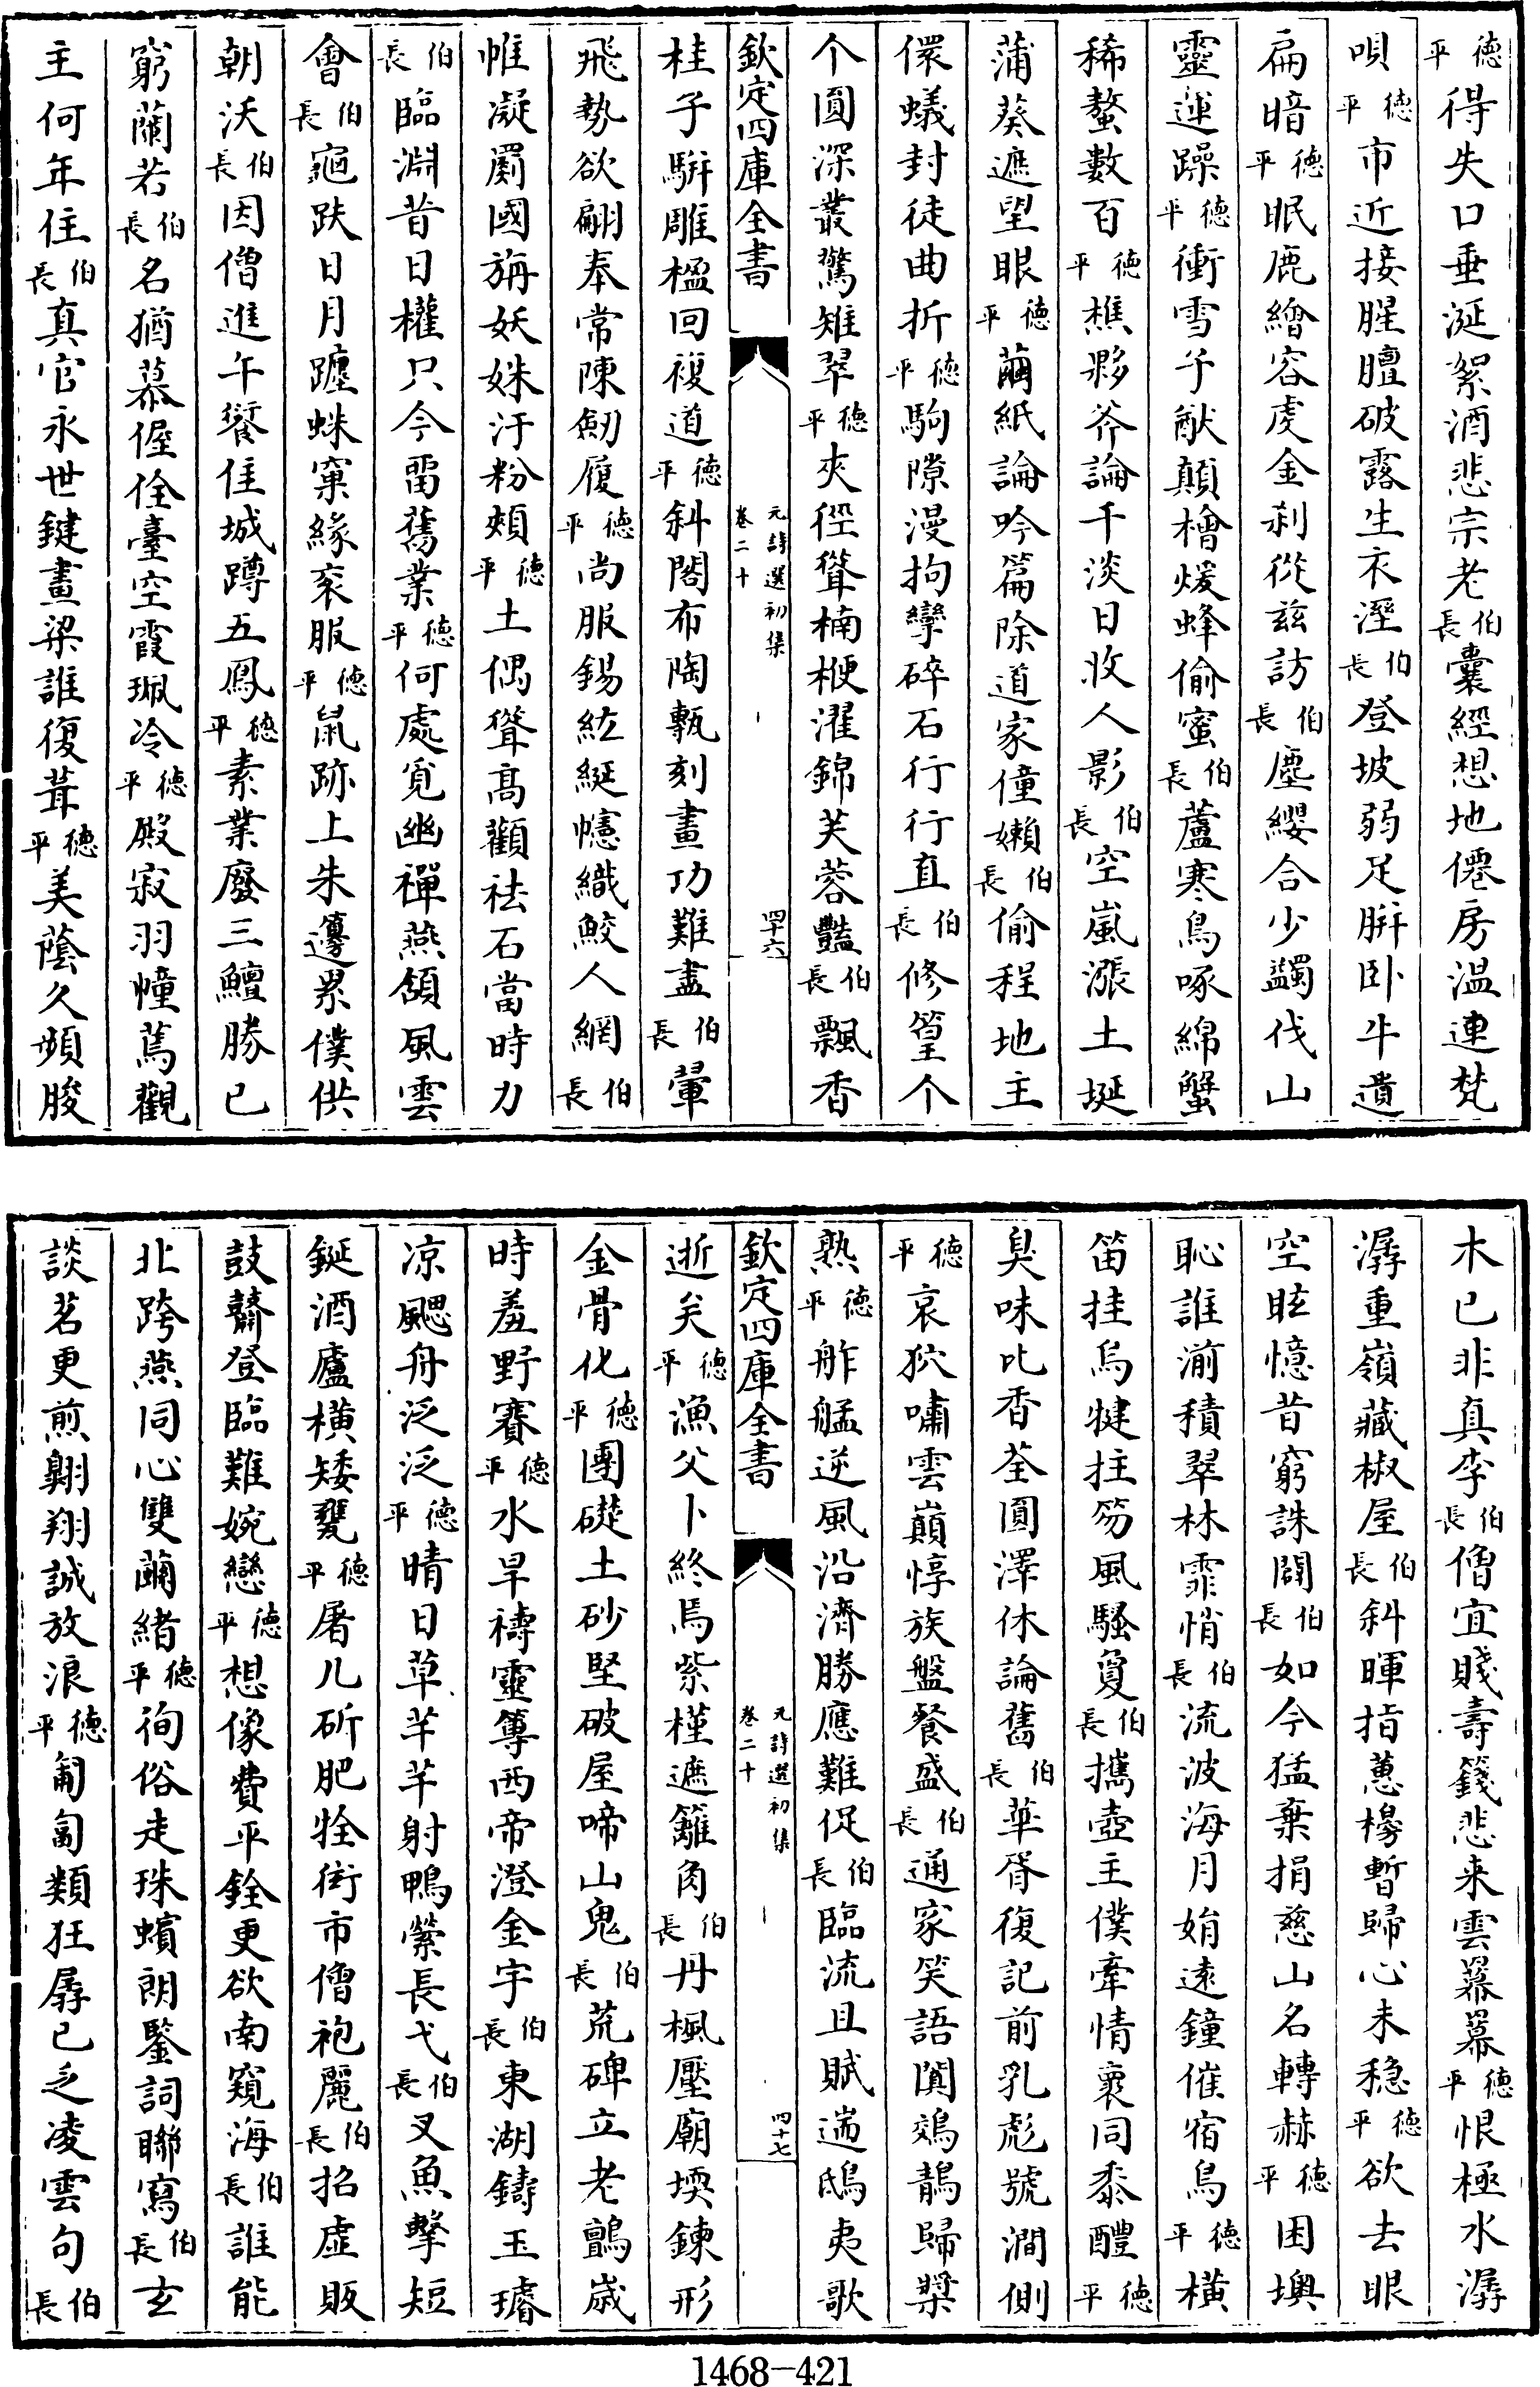 德平得失口垂涎絮酒悲宗老伯長囊經想地僊房温連梵
唄德平市近接腥膻破露生衣溼伯長登坡弱足胼卧牛遺
扁暗德平眠鹿繪容虔金刹從兹訪伯長塵纓合少蠲伐山
靈運躁德平衝雪予猷顛檜煖蜂偷蜜伯長蘆寒鳥啄綿蟹
稀螯數百德平樵夥斧論千淡日收人影伯長空嵐漲土埏
蒲葵遮望眼德平繭紙論吟篇除道家僮嬾伯長偷程地主
儇蟻封徒曲折德平駒隙漫拘攣碎石行行直伯長修篁个
个圓深叢驚雉翠德平夾徑聳楠楩濯錦芙蓉豔伯長飄香
欽定四庫全書
元詩選初集
卷二十
四十六
桂子駢雕楹回複道德平斜閣布陶甎刻畫功難盡伯長翬
飛勢欲翩奉常陳劒履德平尚服錫紘綖幰織鮫人網伯長
帷凝罽國旃妖姝汙粉頰德平土偶聳髙顴祛石當時力
伯長臨淵昔日權只今畱舊業德平何處覓幽禪燕頷風雲
會伯長龜趺日月躔蛛窠緣衮服德平鼠跡上朱邊累僕供
朝沃伯長因僧進午饔佳城蹲五鳳德平素業廢三鱣勝已
窮蘭若伯長名猶慕偓佺臺空霞珮冷德平殿寂羽幢蔫觀
主何年住伯長真官永世鍵畫梁誰復葺德平美蔭久頻朘
木已非真李伯長僧宜賤壽錢悲来雲羃羃德平恨極水潺
潺重嶺藏椒屋伯長斜暉指蔥櫋暫歸心未稳德平欲去眼
空眩憶昔窮誅闢伯長如今猛棄捐慈山名轉赫德平困墺
恥誰湔積翠林霏悄伯長流波海月娟遠鐘催宿鳥德平橫
笛挂烏犍拄笏風騷敻伯長攜壺主僕牽情裏同黍醴德平
臭味比香荃圓澤休論舊伯長華胥復記前乳彪號澗側
德平哀狖嘯雲巔惇族盤餐盛伯長通家笑語闐鵁鶄歸槳
熟德平舴艋逆風沿濟勝應難促伯長臨流且賦遄鴟夷歌
欽定四庫全書
元詩選初集
卷二十
四十七
逝矣德平漁父卜終焉紫槿遮籬角伯長丹楓壓廟堧鍊形
金骨化德平團礎土砂堅破屋啼山鬼伯長荒碑立老鸇歲
時羞野賽德平水旱禱靈篿西帝澄金宇伯長東湖鑄玉璿
凉颸舟泛泛德平晴日草芊芊射鴨縈長弋伯長叉魚擊短
鋋酒廬橫矮甕德平屠几斫肥牷街市僧袍麗伯長招虚販
鼓鼛登臨難婉戀德平想像費平銓更欲南窺海伯長誰能
北跨燕同心雙繭緒德平徇俗走珠蠙朗鑒詞聯寫伯長玄
談茗更煎翺翔誠放浪德平匍匐類狂孱已乏凌雲句伯長
1468-421